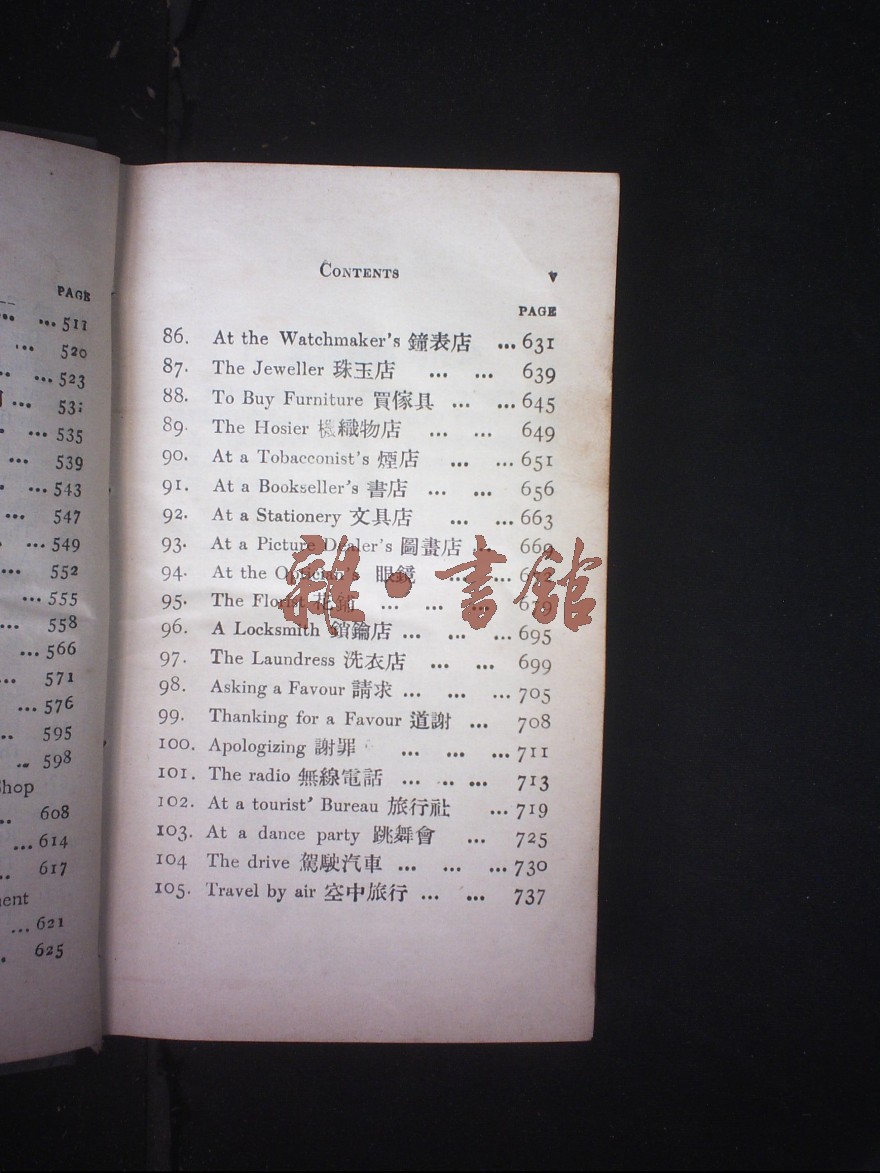 PAGE
... 511
520
... 523
... 
... 535
... 539
... 543
... 547
... 549
... 552
... 555
... 558
... 566
... 571
... 576
... 595
... 598
608
... 614
617
... 621
625
CONTENTS v
PAGE
86. At the Watchmaker's 鐘表店 ... 631
87. The Jeweller 珠玉店 ... ... 639
88. To Buy Furniture 買傢具 ... ... 645
89. The Hosier 機織物店 ... ... 649
90. At a Tobacconist's 煙店 ... ... 651
91. At a Bookseller's 書店 ... ... 656
92. At a Stationery 文具店 ... ... 663
93. At a Picture Dealer's 圖畫店 ... 669
94. At the Optician's 眼鏡 ... ...
95. The Florist 花鋪 ... ... ... 679
96. A Locksmith 鎖鑰店 ... ... ... 695
97. The Laundress 洗衣店 ... ... 699
98. Asking a Favour 請求 ... ... ... 705
99. Thanking for a Favour 道謝 ... 708
100. Apologizing 謝罪 ... ... ... 711
101. The radio 無線電話 ... .. ... 713
102. At a tourist' Bureau 旅行社 ... 719
103. At a dance party 跳舞會 ... 725
104 The drive 駕駛汽車 ... ... ... 730
105. Travel by air 空中旅行 ... ... 737
雜·書館